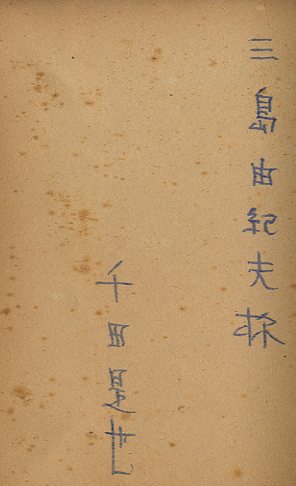 三島由紀夫様
千田是也